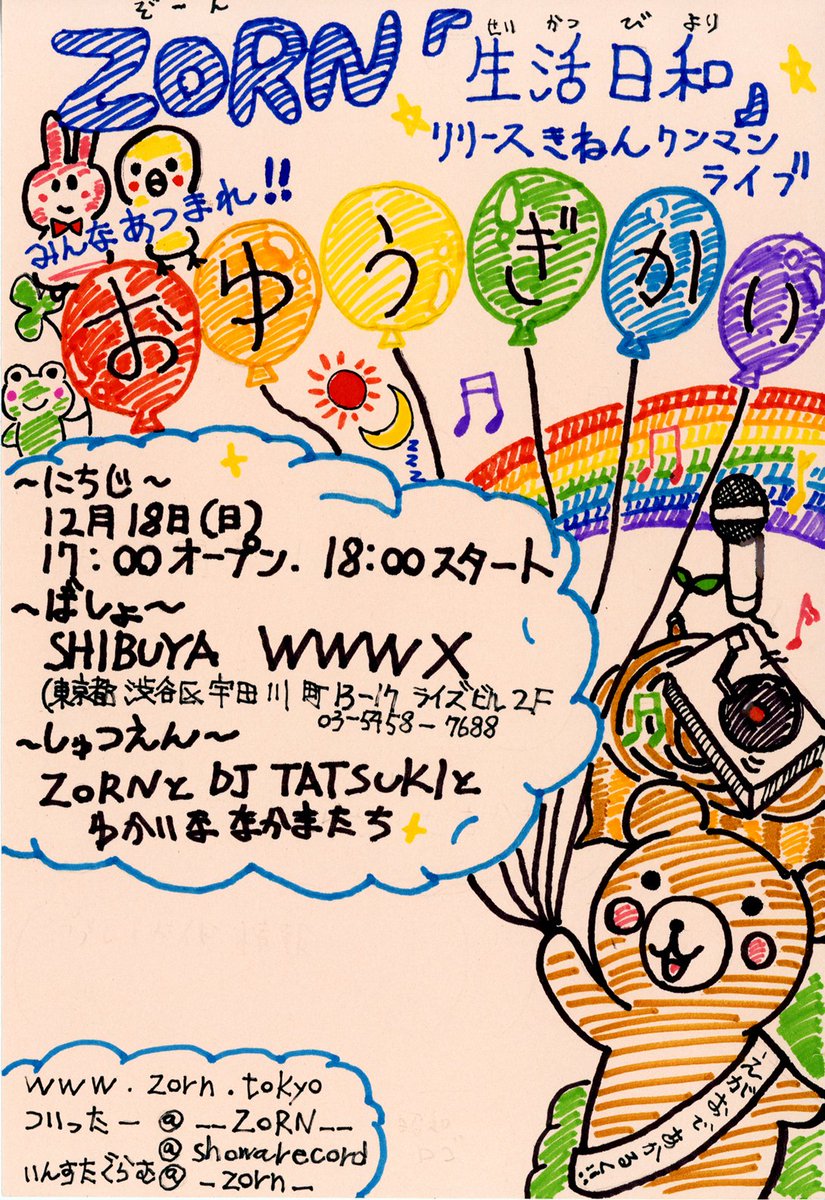 ぞーん
ZORN
せいかつびより
『生活日和』
リリースきねんワンマン
ライブ
みんなあつまれ!!
おゆうぎかい
zzz
～にちじ～
12月18日(日)
17:00オープン. 18:00スタート
～ばしょ～
SHIBUYA WWW X
(東京都渋谷区宇田川町13-17 ライズビル2F
03-5458-7688
～しゅつえん～
ZORNとDJ TATSUKIと
ゆかいななかまたち
www.zorn.tokyo
ついったー@__ZORN__
@showarecord
いんすたぐらむ@_zorn_
えがおであかるく!!